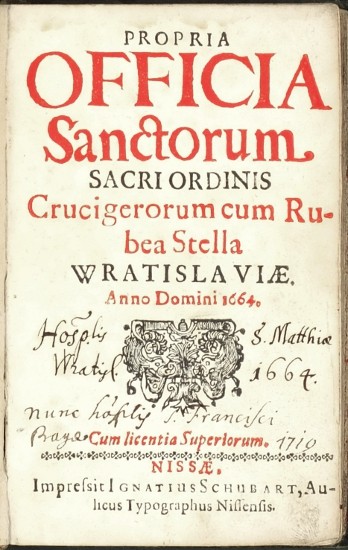 PROPRIA
OFFICIA
Sanctorum
SACRI ORDINIS
Crucigerorum cum Ru-
bea Stella
WRATISLAVIÆ.
Anno Domini 1664.
Hosplis S. Matthiæ
Wratisl 1664.
nunc hósplis S. Francisci
Pragæ Cum licentia Superiorum. 1710
NISSÆ,
Impressit IGNATIUS SCHUBART, Au-
licus Typographus Nissensis.